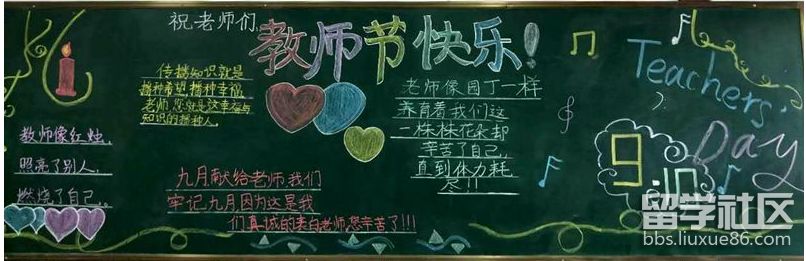 祝老师们
教师节快乐!
Teachers'
Day
9.10
传播知识就是
播种希望,播种幸福
老师,您就是这幸福与
知识的播种人
老师像园丁一样
养育着我们这
一株株花朵却
辛苦了自己,
直到体力耗
尽!!
教师像红烛,
照亮了别人,
燃烧了自己。
九月献给老师我们
牢记九月因为这是我
们真诚的表白老师您辛苦了!!!
留学社区
bbs.liuxue86.com